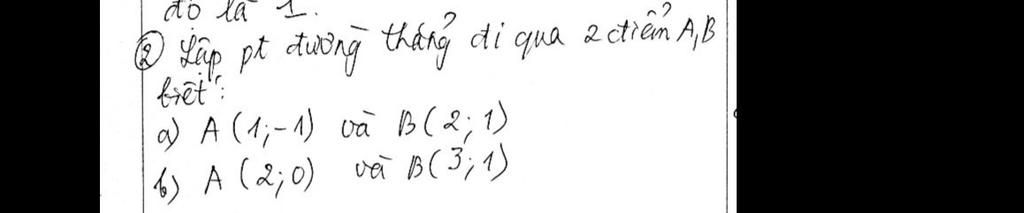 độ là 1.
② Lập pt đường thẳng đi qua 2 điểm A, B
biết:
a) A (1; -1) và B (2; 1)
b) A (2; 0) và B (3; 1)